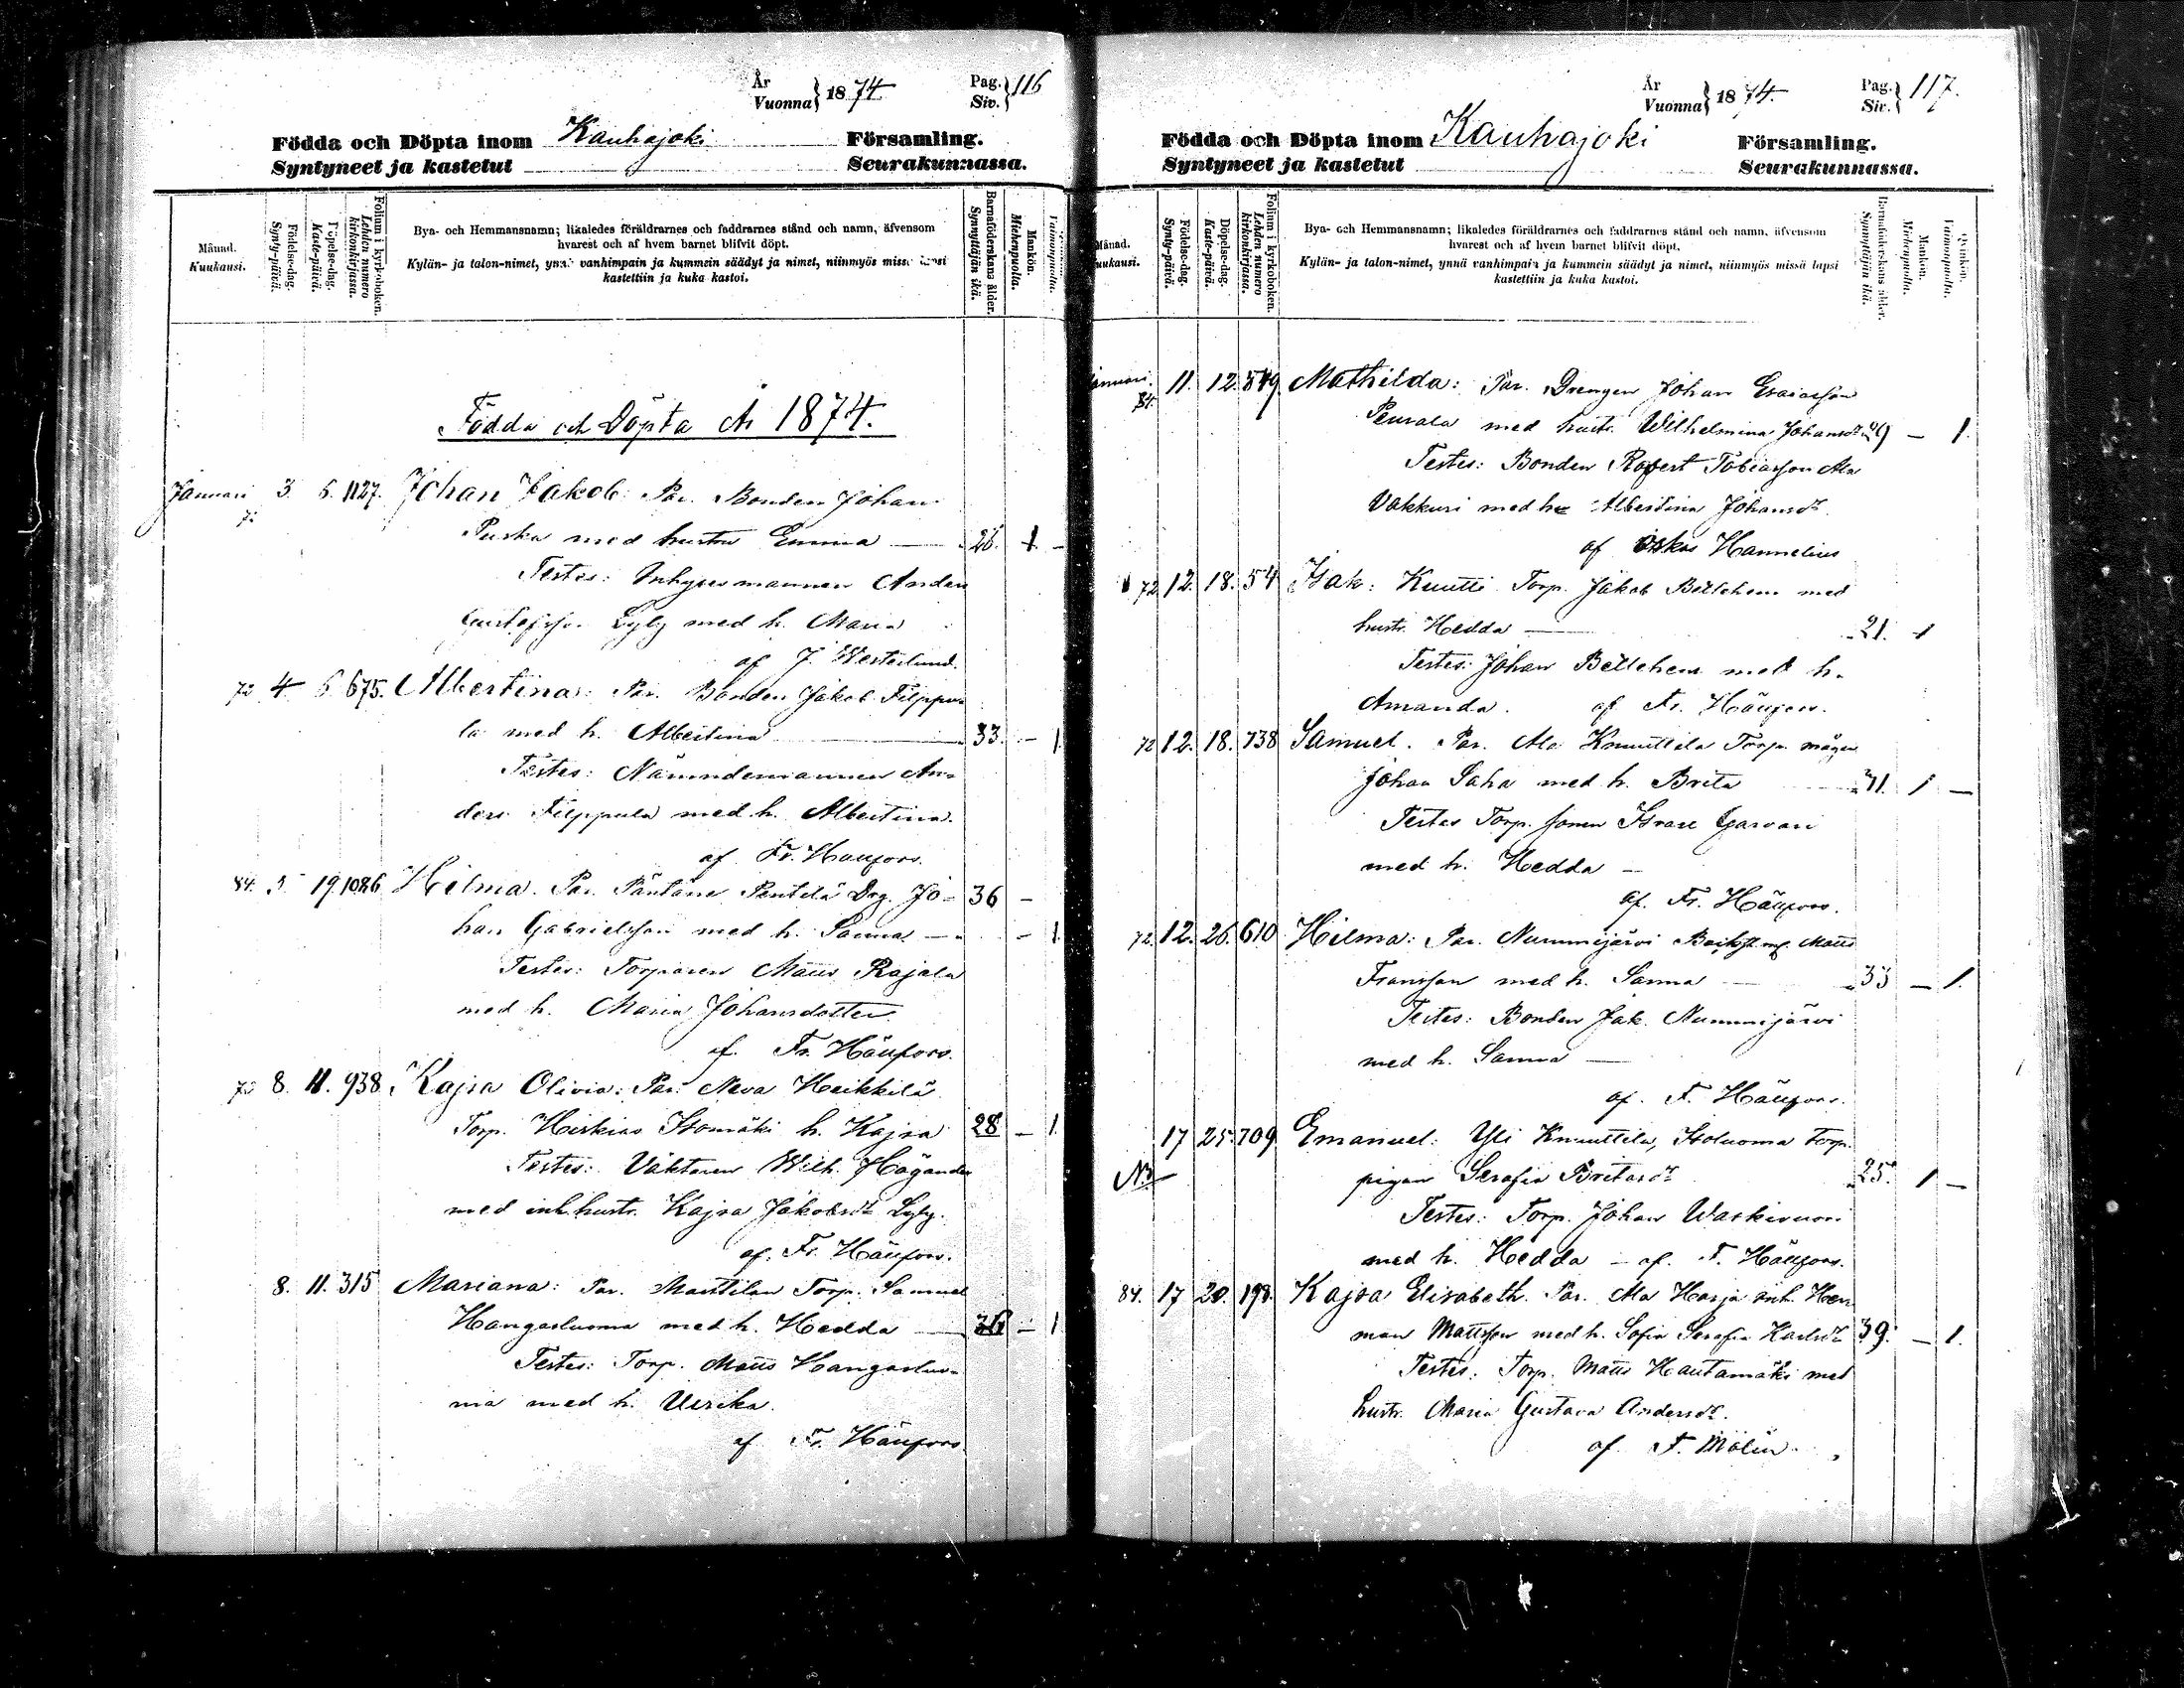 År
Vuonna } 1874
Pag.
Siv. } 116
Födda och Döpta inom Kauhajoki Församling.
Syntyneet ja kastetut Seurakunnassa.
Månad.
Kuukausi.
Födelse-dag.
Synty-päivä.
Döpelse-dag.
Kaste-päivä.
Folium i kyrkoboken.
Lehden numero kirkonkirjassa.
Bya- och Hemmansnamn; likaledes föräldrarnes och faddrarnes stånd och namn, äfvensom
hvarest och af hvem barnet blifvit döpt.
Kylän- ja talon-nimet, ynnä vanhimpain ja kummein säädyt ja nimet, niinmyös missä lapsi
kastettiin ja kuka kastoi.
Barnaföderskans ålder.
Synnyttäjän ikä.
Mankön.
Miehenpuolta.
Vaimonpuolta.
Födda och Döpta År 1874.
Januari 3. 6. 1127. Johan Jakob: Par. Bonden Johan
Puska med hustru Emma — 26. 1. —
Testes: Inhysesmannen Anders
Gustafsson Lyly med h. Maria
af J. Westerlund.
72 4 6 675. Albertina: Par. Bonden Jakob Filppu-
la med h. Albertina — 33. — 1.
Testes: Nämndemannen An-
ders Filppula med h. Albertina.
af Fr. Häufors.
84. 5 19 1086 Hilma. Par. Päntäne Pentilä Drg. Jo- 36 —
han Gabrielsson med h. Sanna — — 1.
Testes: Torparen Matts Rajala
med h. Maria Johansdotter.
af. Fr. Häufors.
72 8. 11. 938. Kajsa Olivia: Par. Neva Heikkilä
Torp. Hiskias Isomäki h. Kajsa 28 — 1.
Testes: Väktaren Wilh. Högander
med inh. hustr. Kajsa Jakobsdr Lyly.
af. Fr. Häufors.
8. 11. 315 Mariana: Par. Marttilan Torp. Samuel
Hangasluoma med h. Hedda — 36 — 1
Testes: Torp. Matts Hangasluo-
ma med h. Ulrika.
af Fr. Häufors.
År
Vuonna } 1874.
Pag.
Siv. } 117.
Födda och Döpta inom Kauhajoki Församling.
Syntyneet ja kastetut Seurakunnassa.
Månad.
Kuukausi.
Födelse-dag.
Synty-päivä.
Döpelse-dag.
Kaste-päivä.
Folium i kyrkoboken.
Lehden numero kirkonkirjassa.
Bya- och Hemmansnamn; likaledes föräldrarnes och faddrarnes stånd och namn, äfvensom
hvarest och af hvem barnet blifvit döpt.
Kylän- ja talon-nimet, ynnä vanhimpain ja kummein säädyt ja nimet, niinmyös missä lapsi
kastettiin ja kuka kastoi.
Barnaföderskans ålder.
Synnyttäjän ikä.
Mankön.
Miehenpuolta.
Qvinkön.
Vaimonpuolta.
Januari. 11. 12. Mathilda: Par. Drengen Johan Esaiasson
84.
Peurala med hustr. Wilhelmina Johansdr 29 — 1.
Testes: Bonden Robert Tobiasson Ala
Vakkuri med h Albertina Johansdr.
af Oskar Hannelius
72 12. 18. 54 Isak: Knutti Torp. Jakob Betlehem med
hustr. Hedda — 21. 1
Testes: Johan Betlehem med h.
Amanda. af Fr. Häufors.
72 12. 18. 738 Samuel. Par. Ala Knuuttila Torp. mågen
Johan Saha med h. Brita 1 —
Testes Torp. sonen Israel Garvari
med h. Hedda —
af. Fr. Häufors.
72. 12. 26. 610 Hilma: Par. Nummijärvi Matts
Fransson med h. Sanna — 33 — 1.
Testes: Bonden Jak. Nummijärvi
med h. Sanna —
af. F. Häufors.
17 25. 709 Emanuel: Yli Knuuttila, Isoluoma Torp.
pigan Serafia Britasdr 25. 1 —
Testes: Torp. Johan Waskivuori
med h. Hedda — af. F. Häufors.
84. 17 20. 198. Kajsa Elisabeth. Par. Ala Harja inh. Her-
man Mattsson med h. Sofia Serafia Karlsdr 39. — 1.
Testes: Torp. Matts Hautamäki med
hustr. Maria Gustava Andersdr.
af F. Molin.